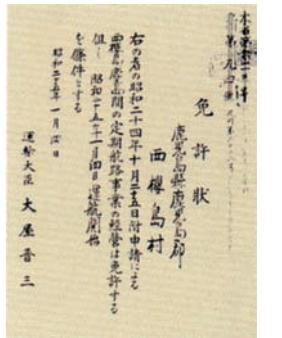 免許狀
鹿児島縣鹿児島郡
西櫻島村
右の者の昭和二十四年十月二十五日附申請による
鹿児島間の定期航路事業の経営は免許する
但し昭和二十五年一月四日運航開始
を條件とする
昭和二十五年一月四日
運輸大臣 大屋晋三